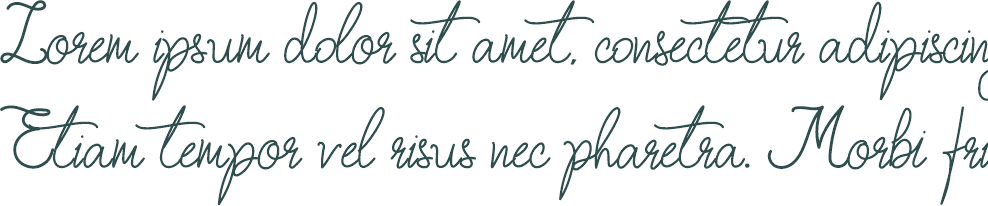 Lorem ipsum dolor sit amet, consectetur adipiscing
Etiam tempor vel risus nec pharetra. Morbi fri